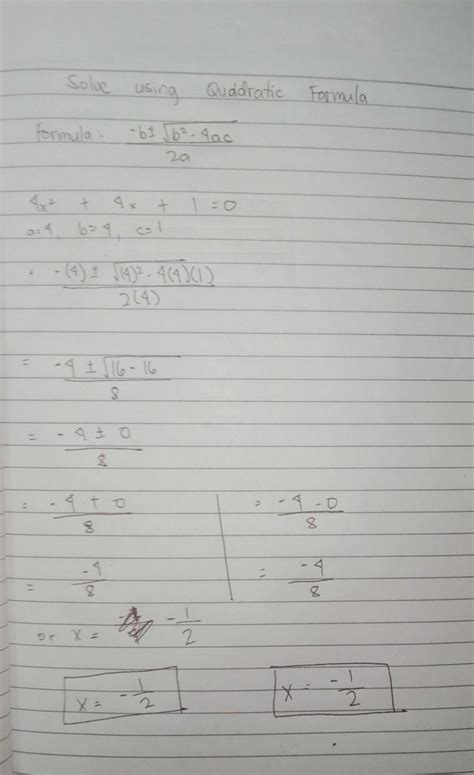 Solve using Quddratic Formula
formula: -b ± √b² - 4ac / 2a
4x² + 4x + 1 = 0
a=4, b=4, c=1
= -(4) ± √(4)² - 4(4)(1) / 2(4)
= -4 ± √16 - 16 / 8
= -4 ± 0 / 8
= -4 + 0 / 8
= -4 / 8
or x = -1/2
x = -1/2
= -4 - 0 / 8
= -4 / 8
x = -1/2